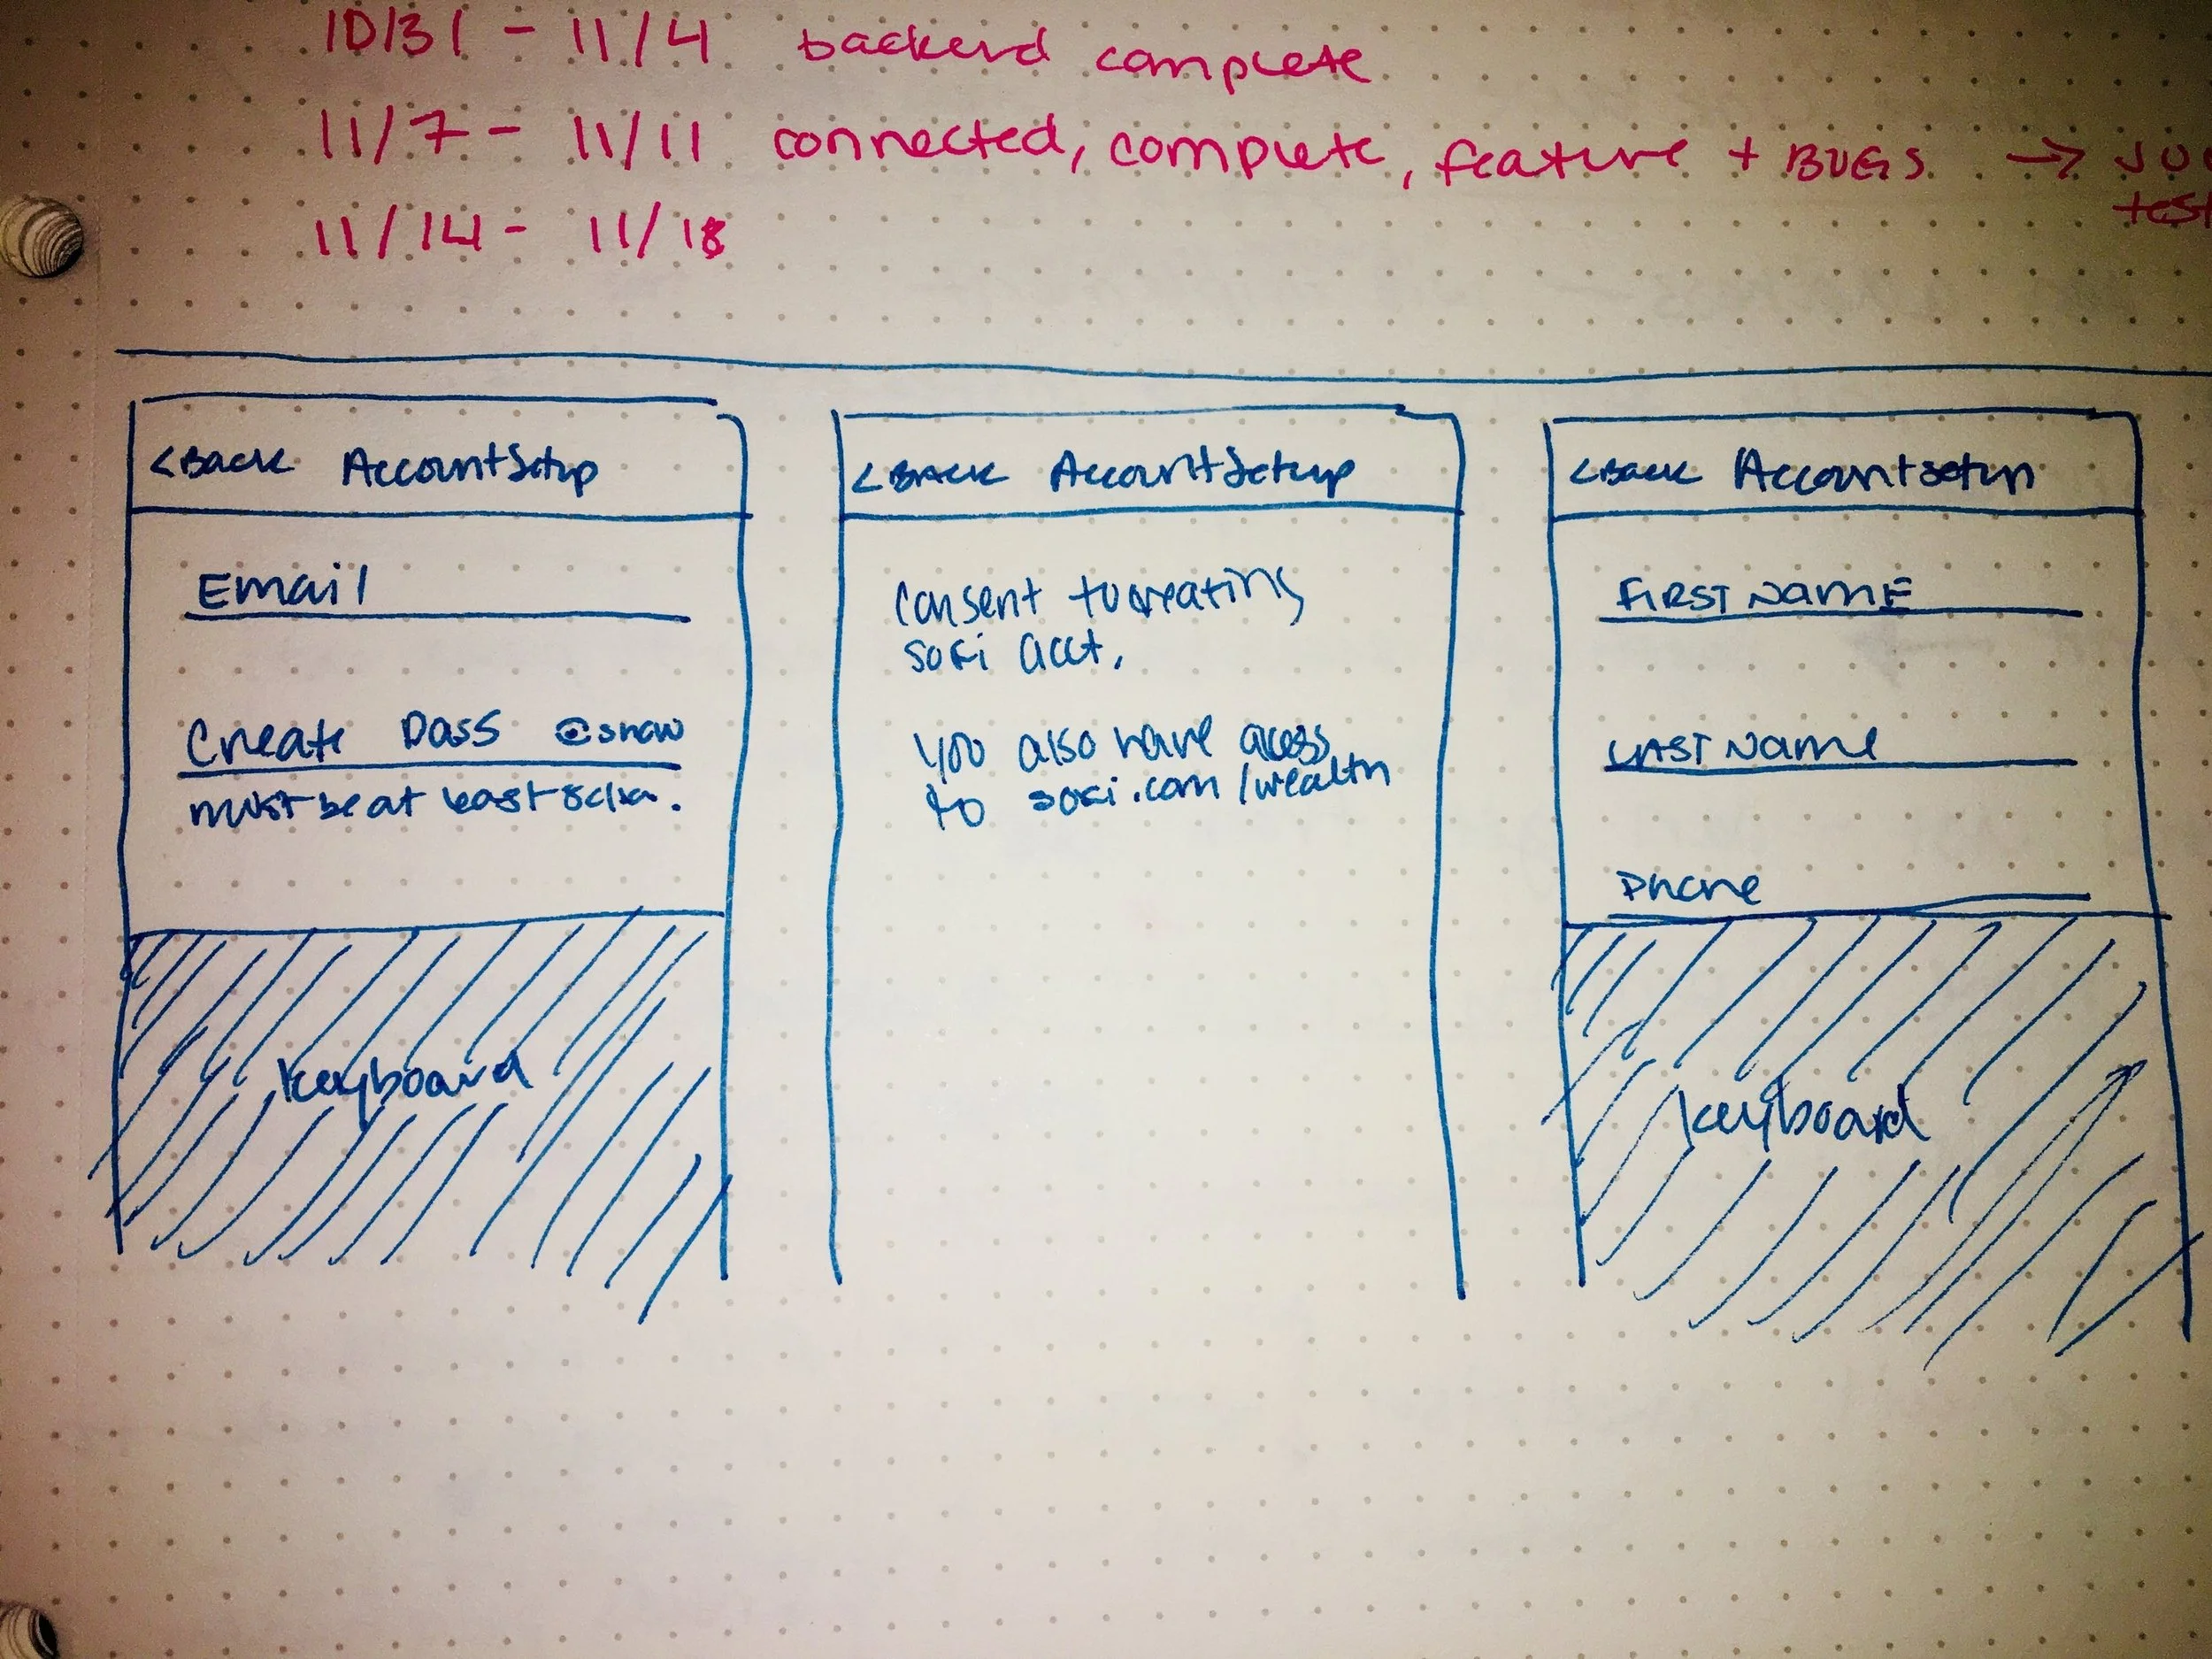 10/31 - 11/4 backend complete
11/7 - 11/11 connected, complete, feature + BUGS →
test
11/14 - 11/18
<Back Account Setup
Email
Create Pass @show
must be at least 8 cha.
keyboard
<Back Account Setup
Consent to creating
sofi acct.
you also have access
to sofi.com/wealth
<Back Account Setup
FIRST NAME
LAST NAME
Phone
keyboard